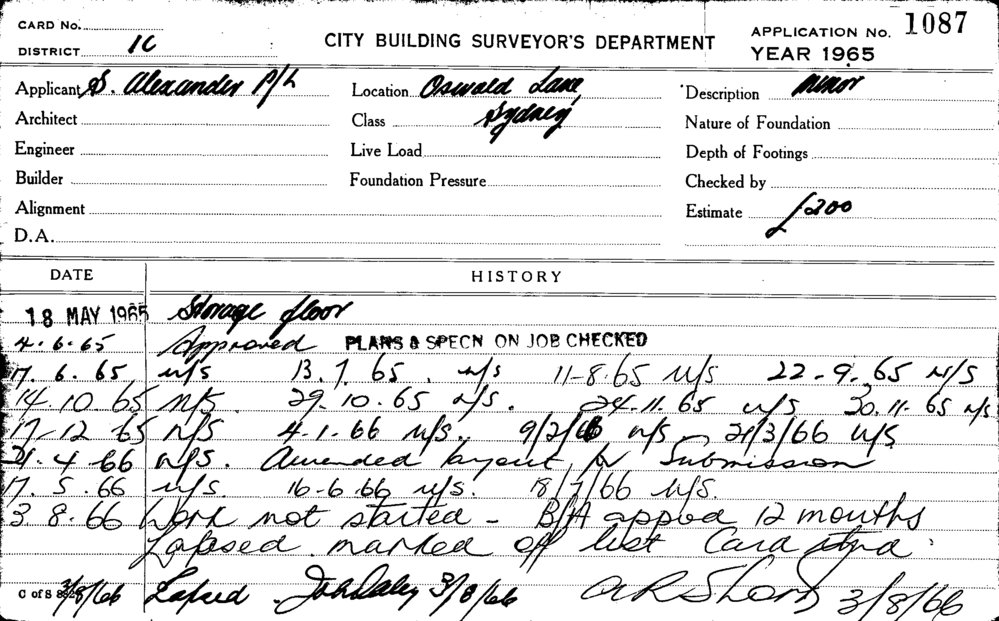 CARD No.
DISTRICT 1C
CITY BUILDING SURVEYOR'S DEPARTMENT
APPLICATION No. 1087
YEAR 1965
Applicant S. Alexander P/L
Location Oswald Lane,
Sydney
Description Minor
Architect
Class
Nature of Foundation
Engineer
Live Load
Depth of Footings
Builder
Foundation Pressure
Checked by
Alignment
Estimate £200
D.A.
DATE HISTORY
18 MAY 1965 Storage floor
4.6.65 Approved PLANS & SPECN ON JOB CHECKED
17.6.65 n/s 13.7.65. n/s 11-8.65 n/s 22-9.65 n/s
14.10.65 n/s. 29.10.65 n/s. 24.11.65 n/s 30.11.65 n/s
17-12 65 n/s 4-1-66 n/s. 9/2/66 n/s 21/3/66 n/s
21.4-66 n/s. Amended layout for Submission
17.5.66 n/s. 16-6.66 n/s. 18/7/66 n/s.
3.8.66 Work not started - B/A appd 12 months
Lapsed. marked off list Card
C of S 3/8/66 Lapsed John Daley 3/8/66 3/8/66